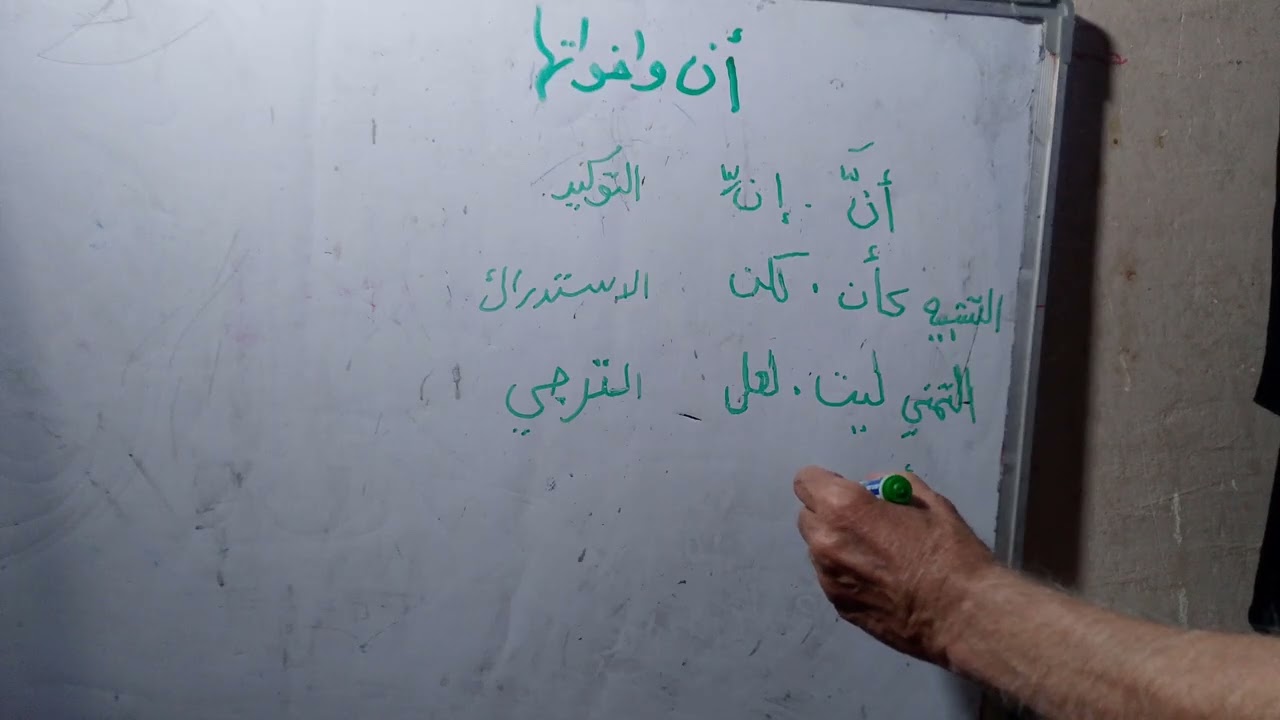 أن واخواتها
أنَّ . إنَّ التوكيد
التشبيه كأن . لكن الاستدراك
التمني ليت . لعل الترجي